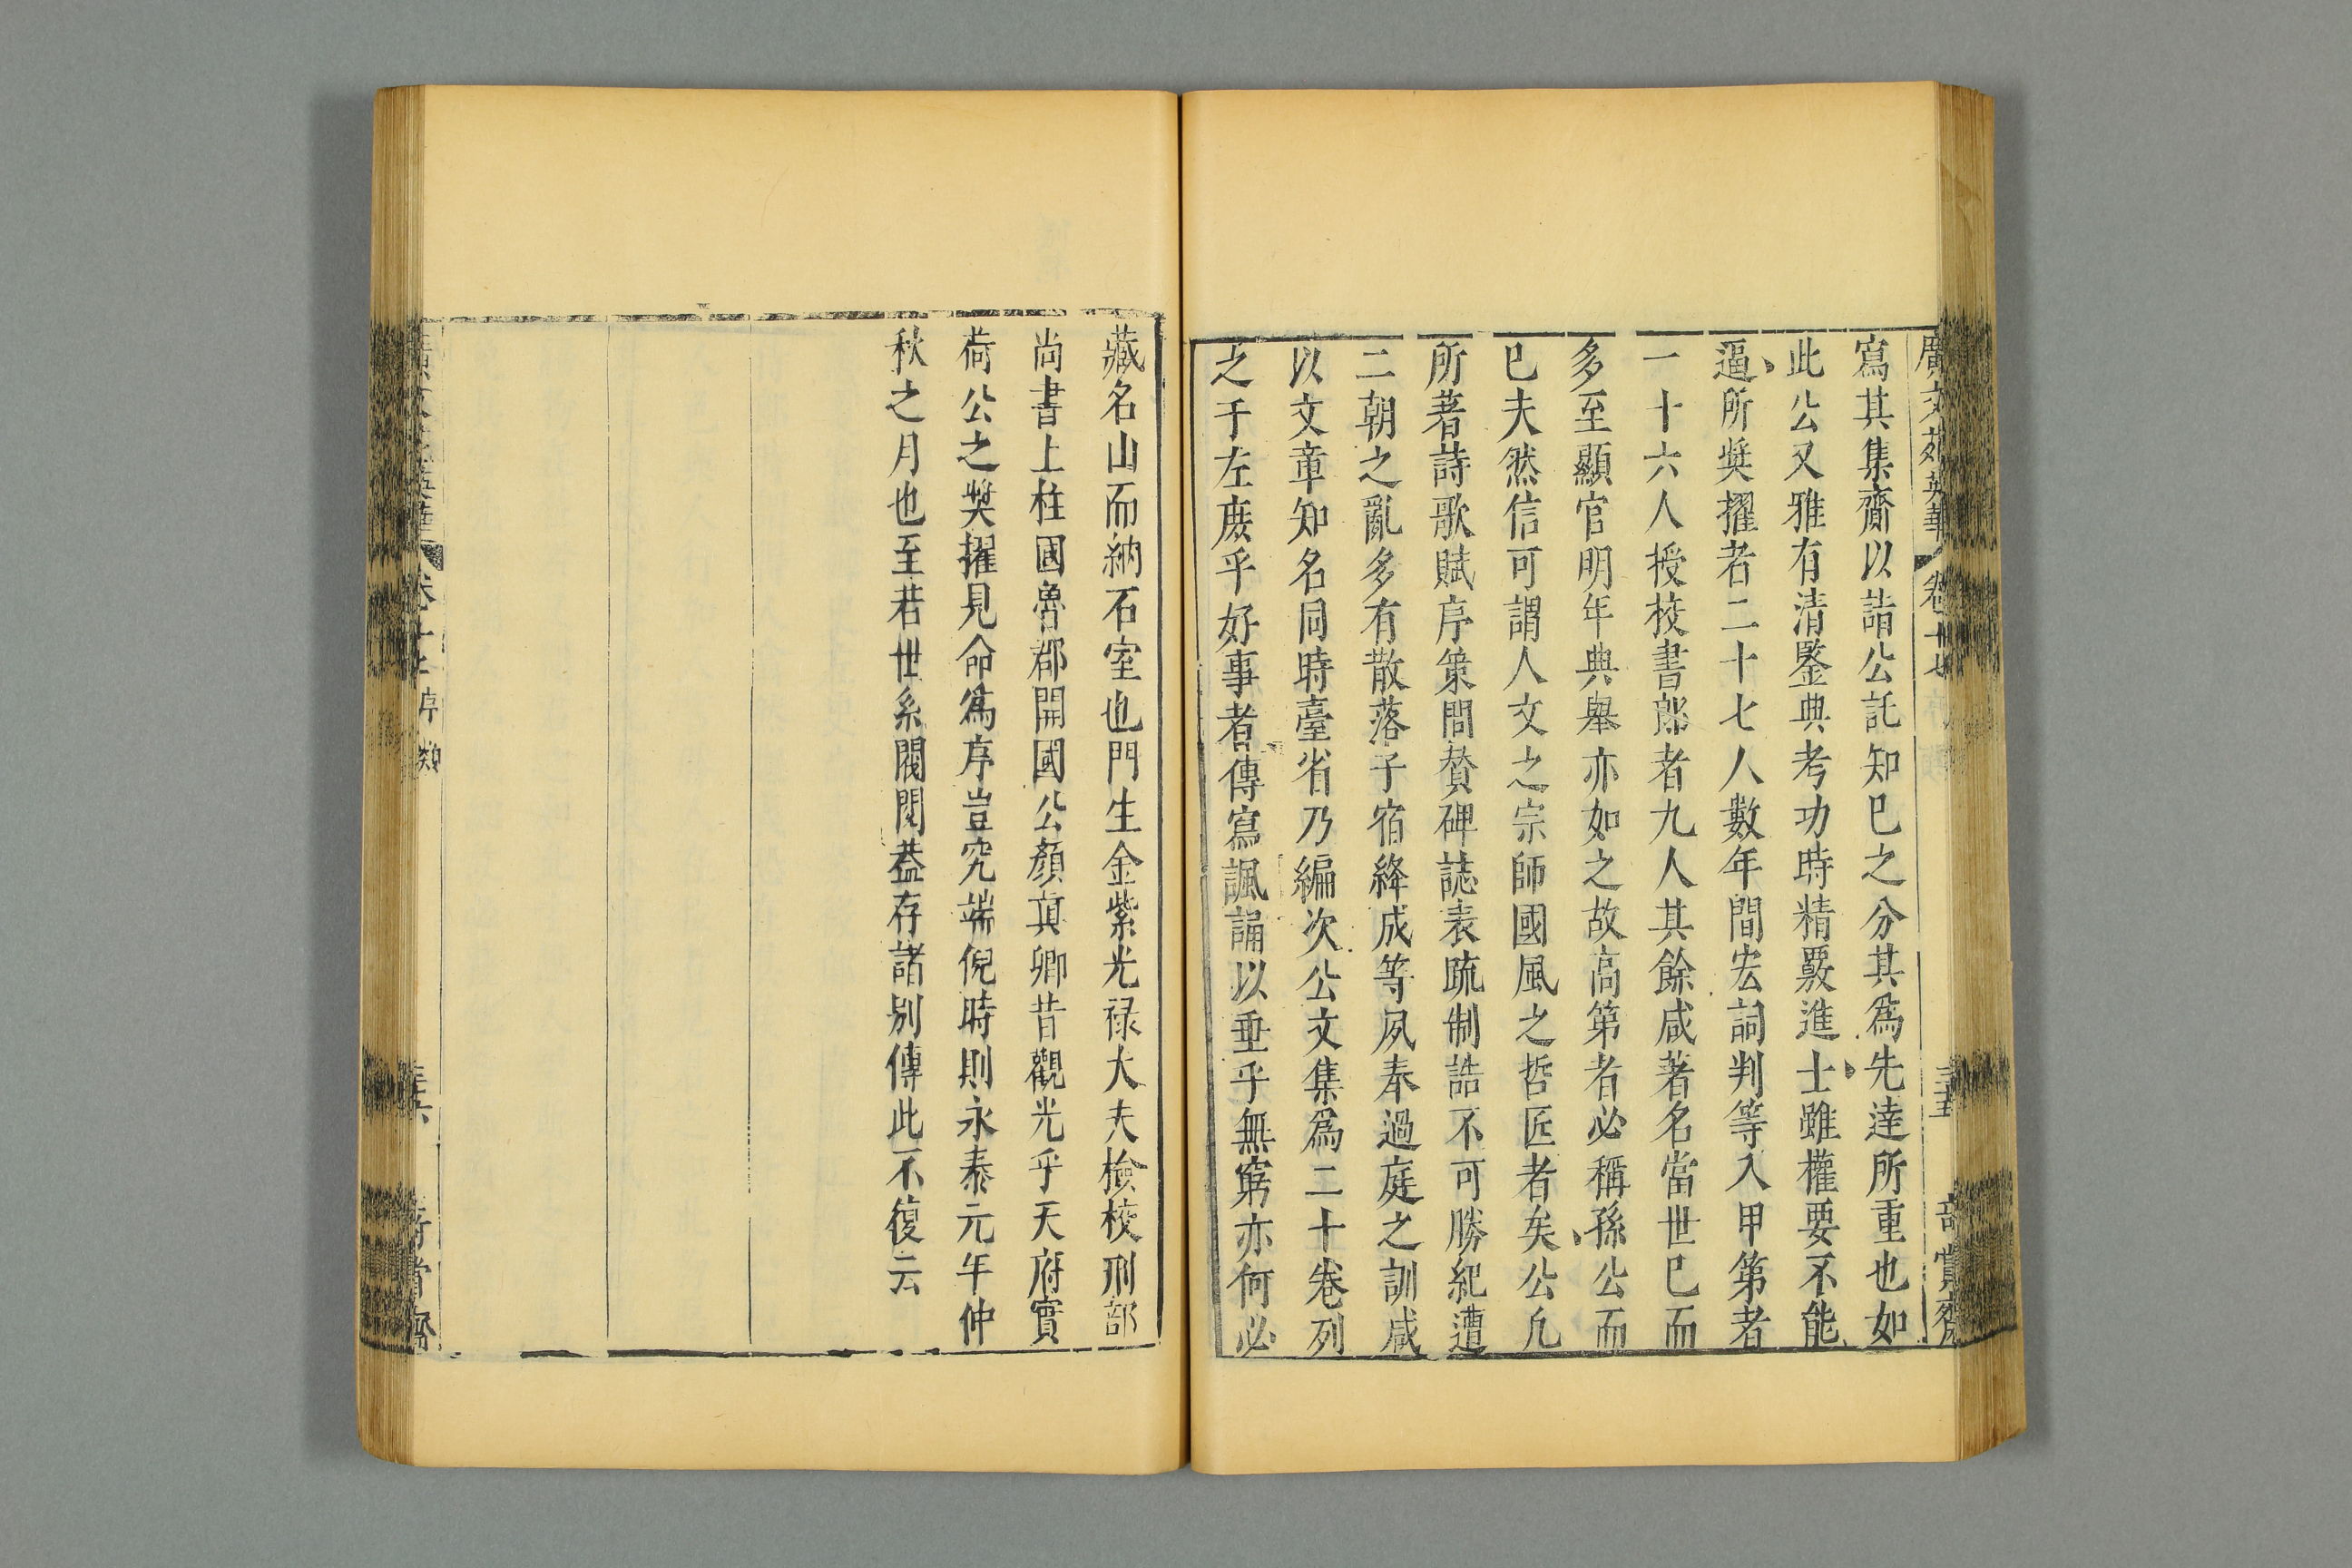 廣文苑英華 卷十七
寫其集齋以詣公託知巳之分其爲先達所重也如
此公又雅有清鑒典考功時精覈進士雖權要不能
逼所奬擢者二十七人數年間宏詞判等入甲第者
一十六人授校書郎者九人其餘咸著名當世巳而
多至顯官明年典舉亦如之故高第者必稱孫公而
巳夫然信可謂人文之宗師國風之哲匠者矣公凡
所著詩歌賦序策問贊碑誌表疏制誥不可勝紀遭
二朝之亂多有散落子宿絳成等夙奉過庭之訓咸
以文章知名同時臺省乃編次公文集爲二十卷列
之于左庶乎好事者傳寫諷誦以垂乎無窮亦何必
藏名山而納石室也門生金紫光祿大夫檢校刑部
尚書上柱國魯郡開國公顏真卿昔觀光乎天府實
荷公之奬擢見命爲序豈究端倪時則永泰元年仲
秋之月也至若世系閥閱葢存諸別傳此不復云
序類